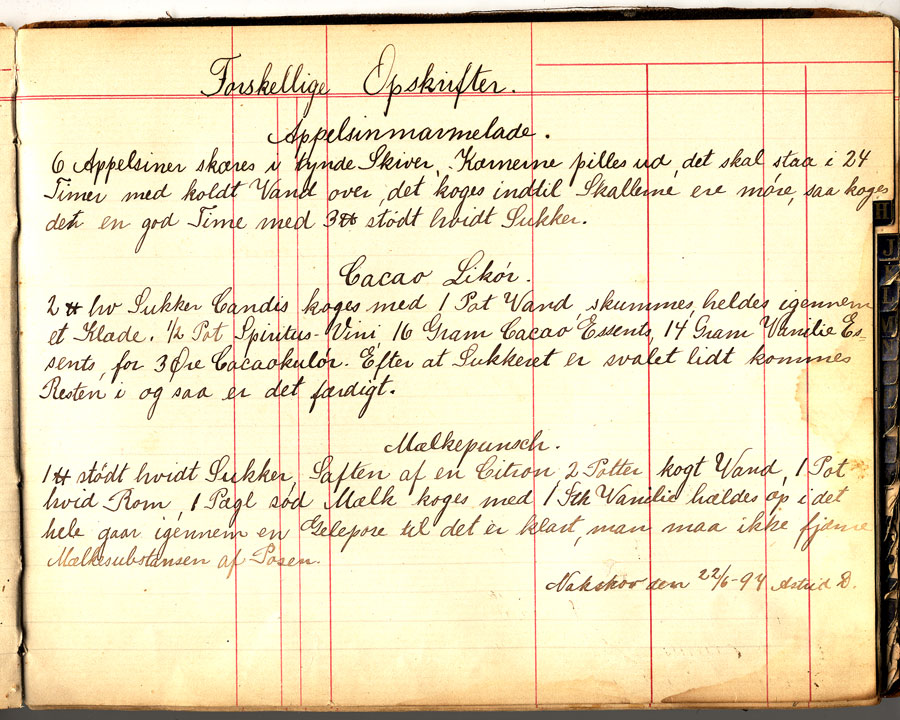 Forskellige Opskrifter.
Appelsinmarmelade.
6 Appelsiner skæres i tynde Skiver. Kærnerne pilles ud, det skal staa i 24
Timer med koldt Vand over, det koges indtil Skallerne ere møre, saa koges
det en god Time med 3 ℔ stødt hvidt Sukker.
Cacao Likör.
2 ℔ hv Sukker Candis koges med 1 Pot Vand, skummes, heldes igennem
et Klæde. 1/2 Pot Spiritus-Vini, 16 Gram Cacao Essents, 14 Gram Vanilie Es-
sents, for 3 Øre Cacaokulør. Efter at Sukkeret er svalet lidt kommes
Resten i og saa er det færdigt.
Mælkepunsch.
1 ℔ stødt hvidt Sukker, Saften af en Citron, 2 Potter kogt Vand, 1 Pot
hvid Rom, 1 Pægl sød Mælk koges med 1 Stk Vanilie hældes op i det
hele gaar igennem en Gelepose til det er klart, man maa ikke fjærne
Mælkesubstansen af Posen.
Nakskov den 22/6-94 Astrid D.
H
J
L
M